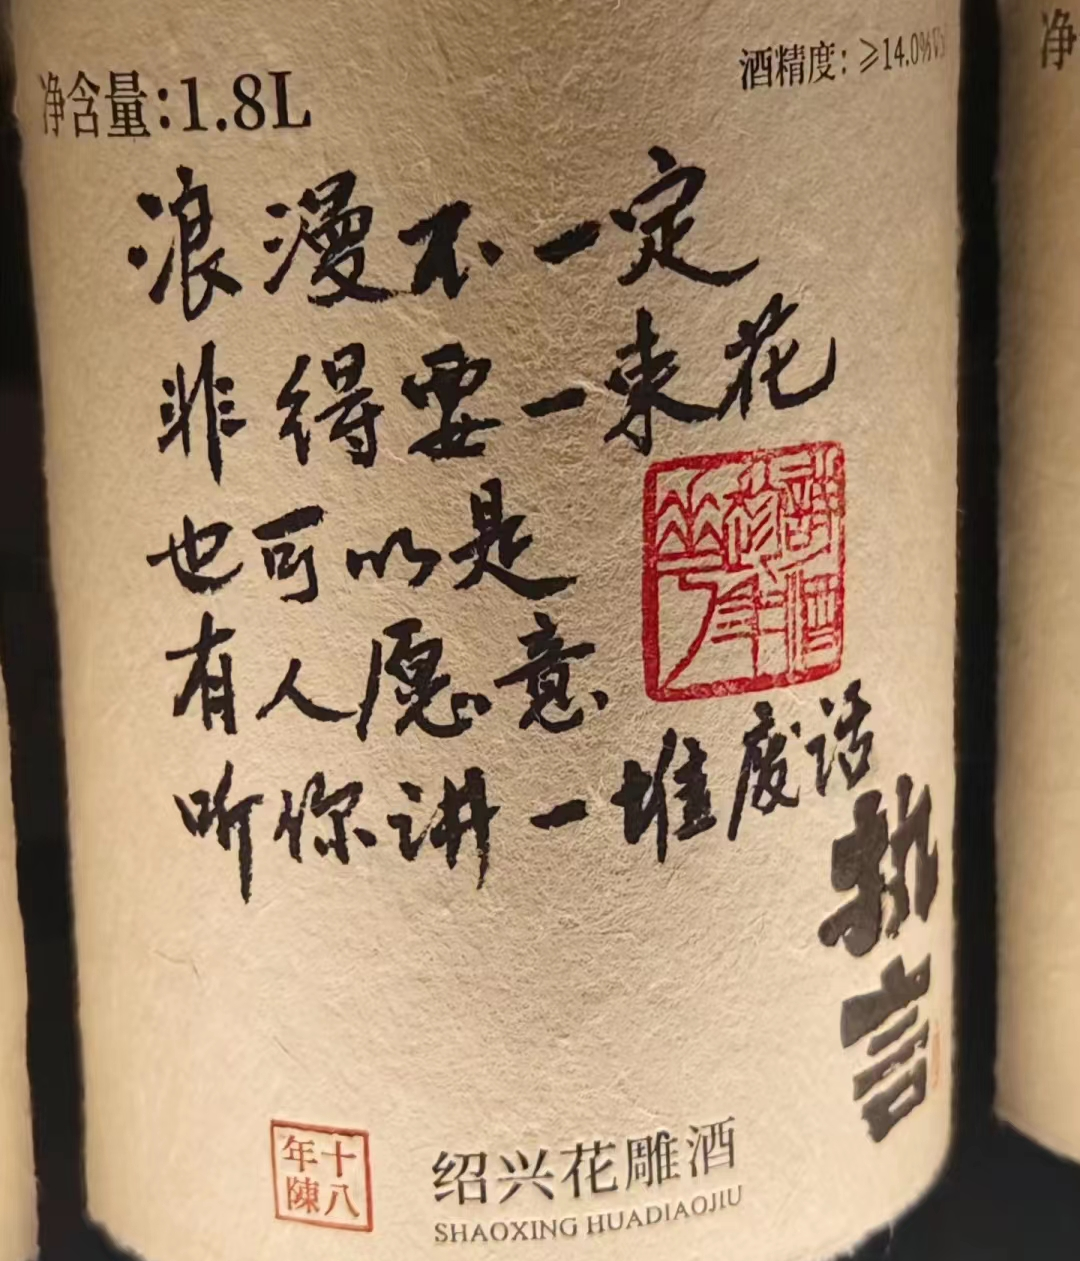 净含量:1.8L
酒精度: ≥14.0%V
净
浪漫不一定
非得要一束花
也可以是
有人愿意
听你讲一堆废话
执言
十八
年陳
绍兴花雕酒
SHAOXING HUADIAOJIU